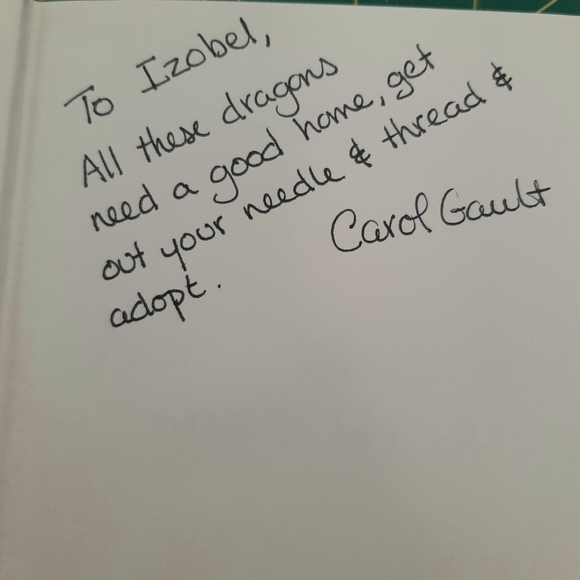 To Izobel,
All these dragons
need a good home, get
out your needle & thread &
adopt.
Carol Gault